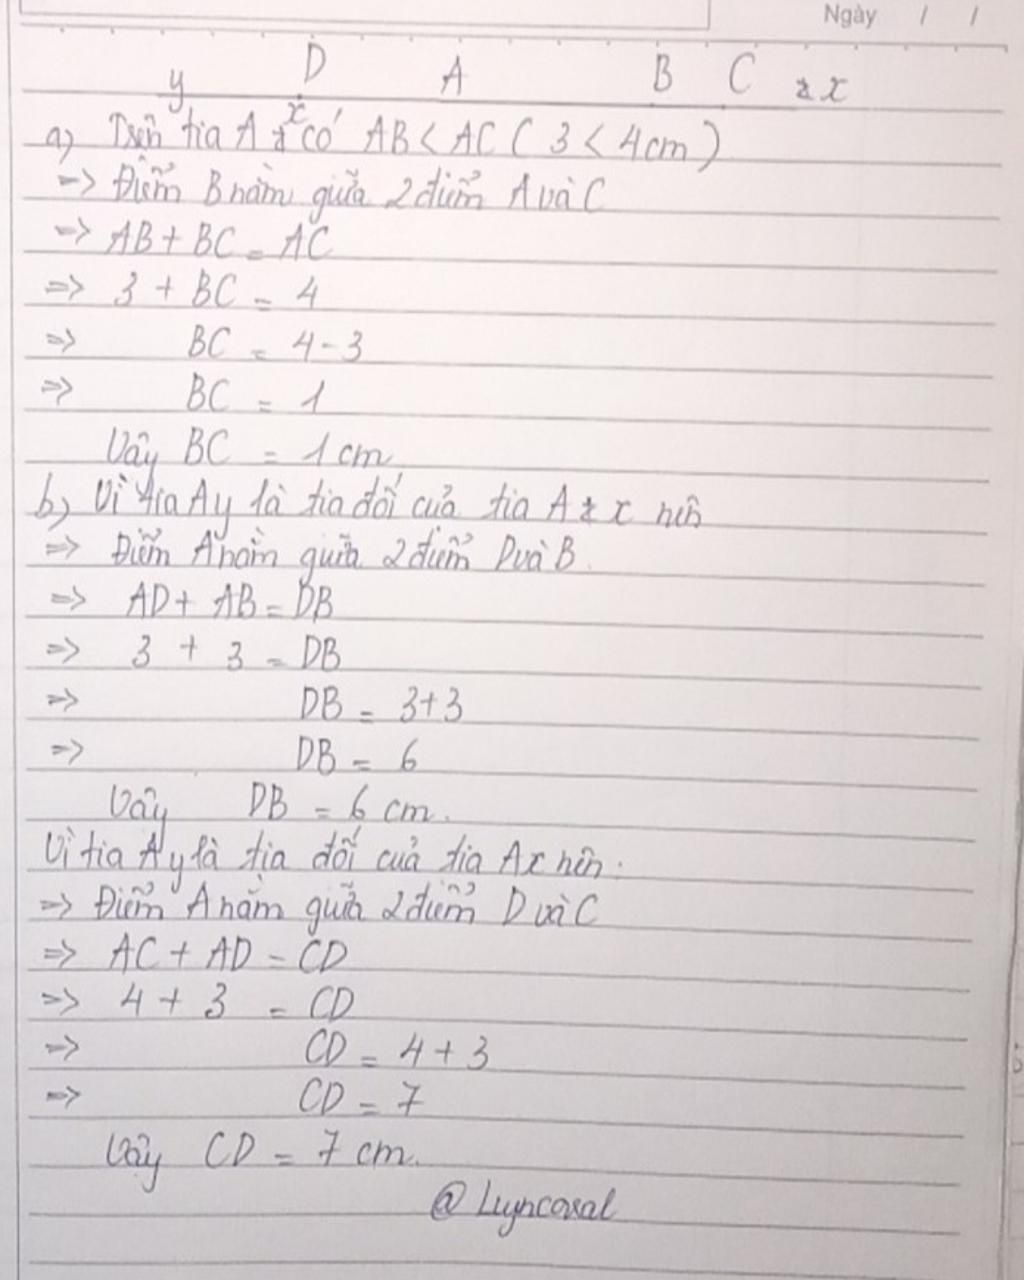 Ngày / /
y D A B C x
a) Trên tia Ax có AB < AC ( 3 < 4cm )
=> Điểm B nằm giữa 2 điểm A và C
=> AB + BC = AC
=> 3 + BC = 4
=> BC = 4 - 3
=> BC = 1
Vậy BC = 1 cm
b) Vì tia Ay là tia đối của tia A x nên
=> Điểm A nằm giữa 2 điểm D và B.
=> AD + AB = DB
=> 3 + 3 = DB
=> DB = 3+3
=> DB = 6
Vậy DB = 6 cm.
Vì tia Ay là tia đối của tia Ax nên:
=> Điểm A nằm giữa 2 điểm D và C
=> AC + AD = CD
=> 4 + 3 = CD
=> CD = 4 + 3
=> CD = 7
Vậy CD = 7 cm.